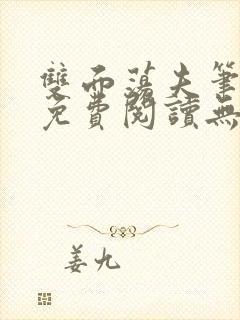 雙面蕩夫筆
免費閱讀無
姜九